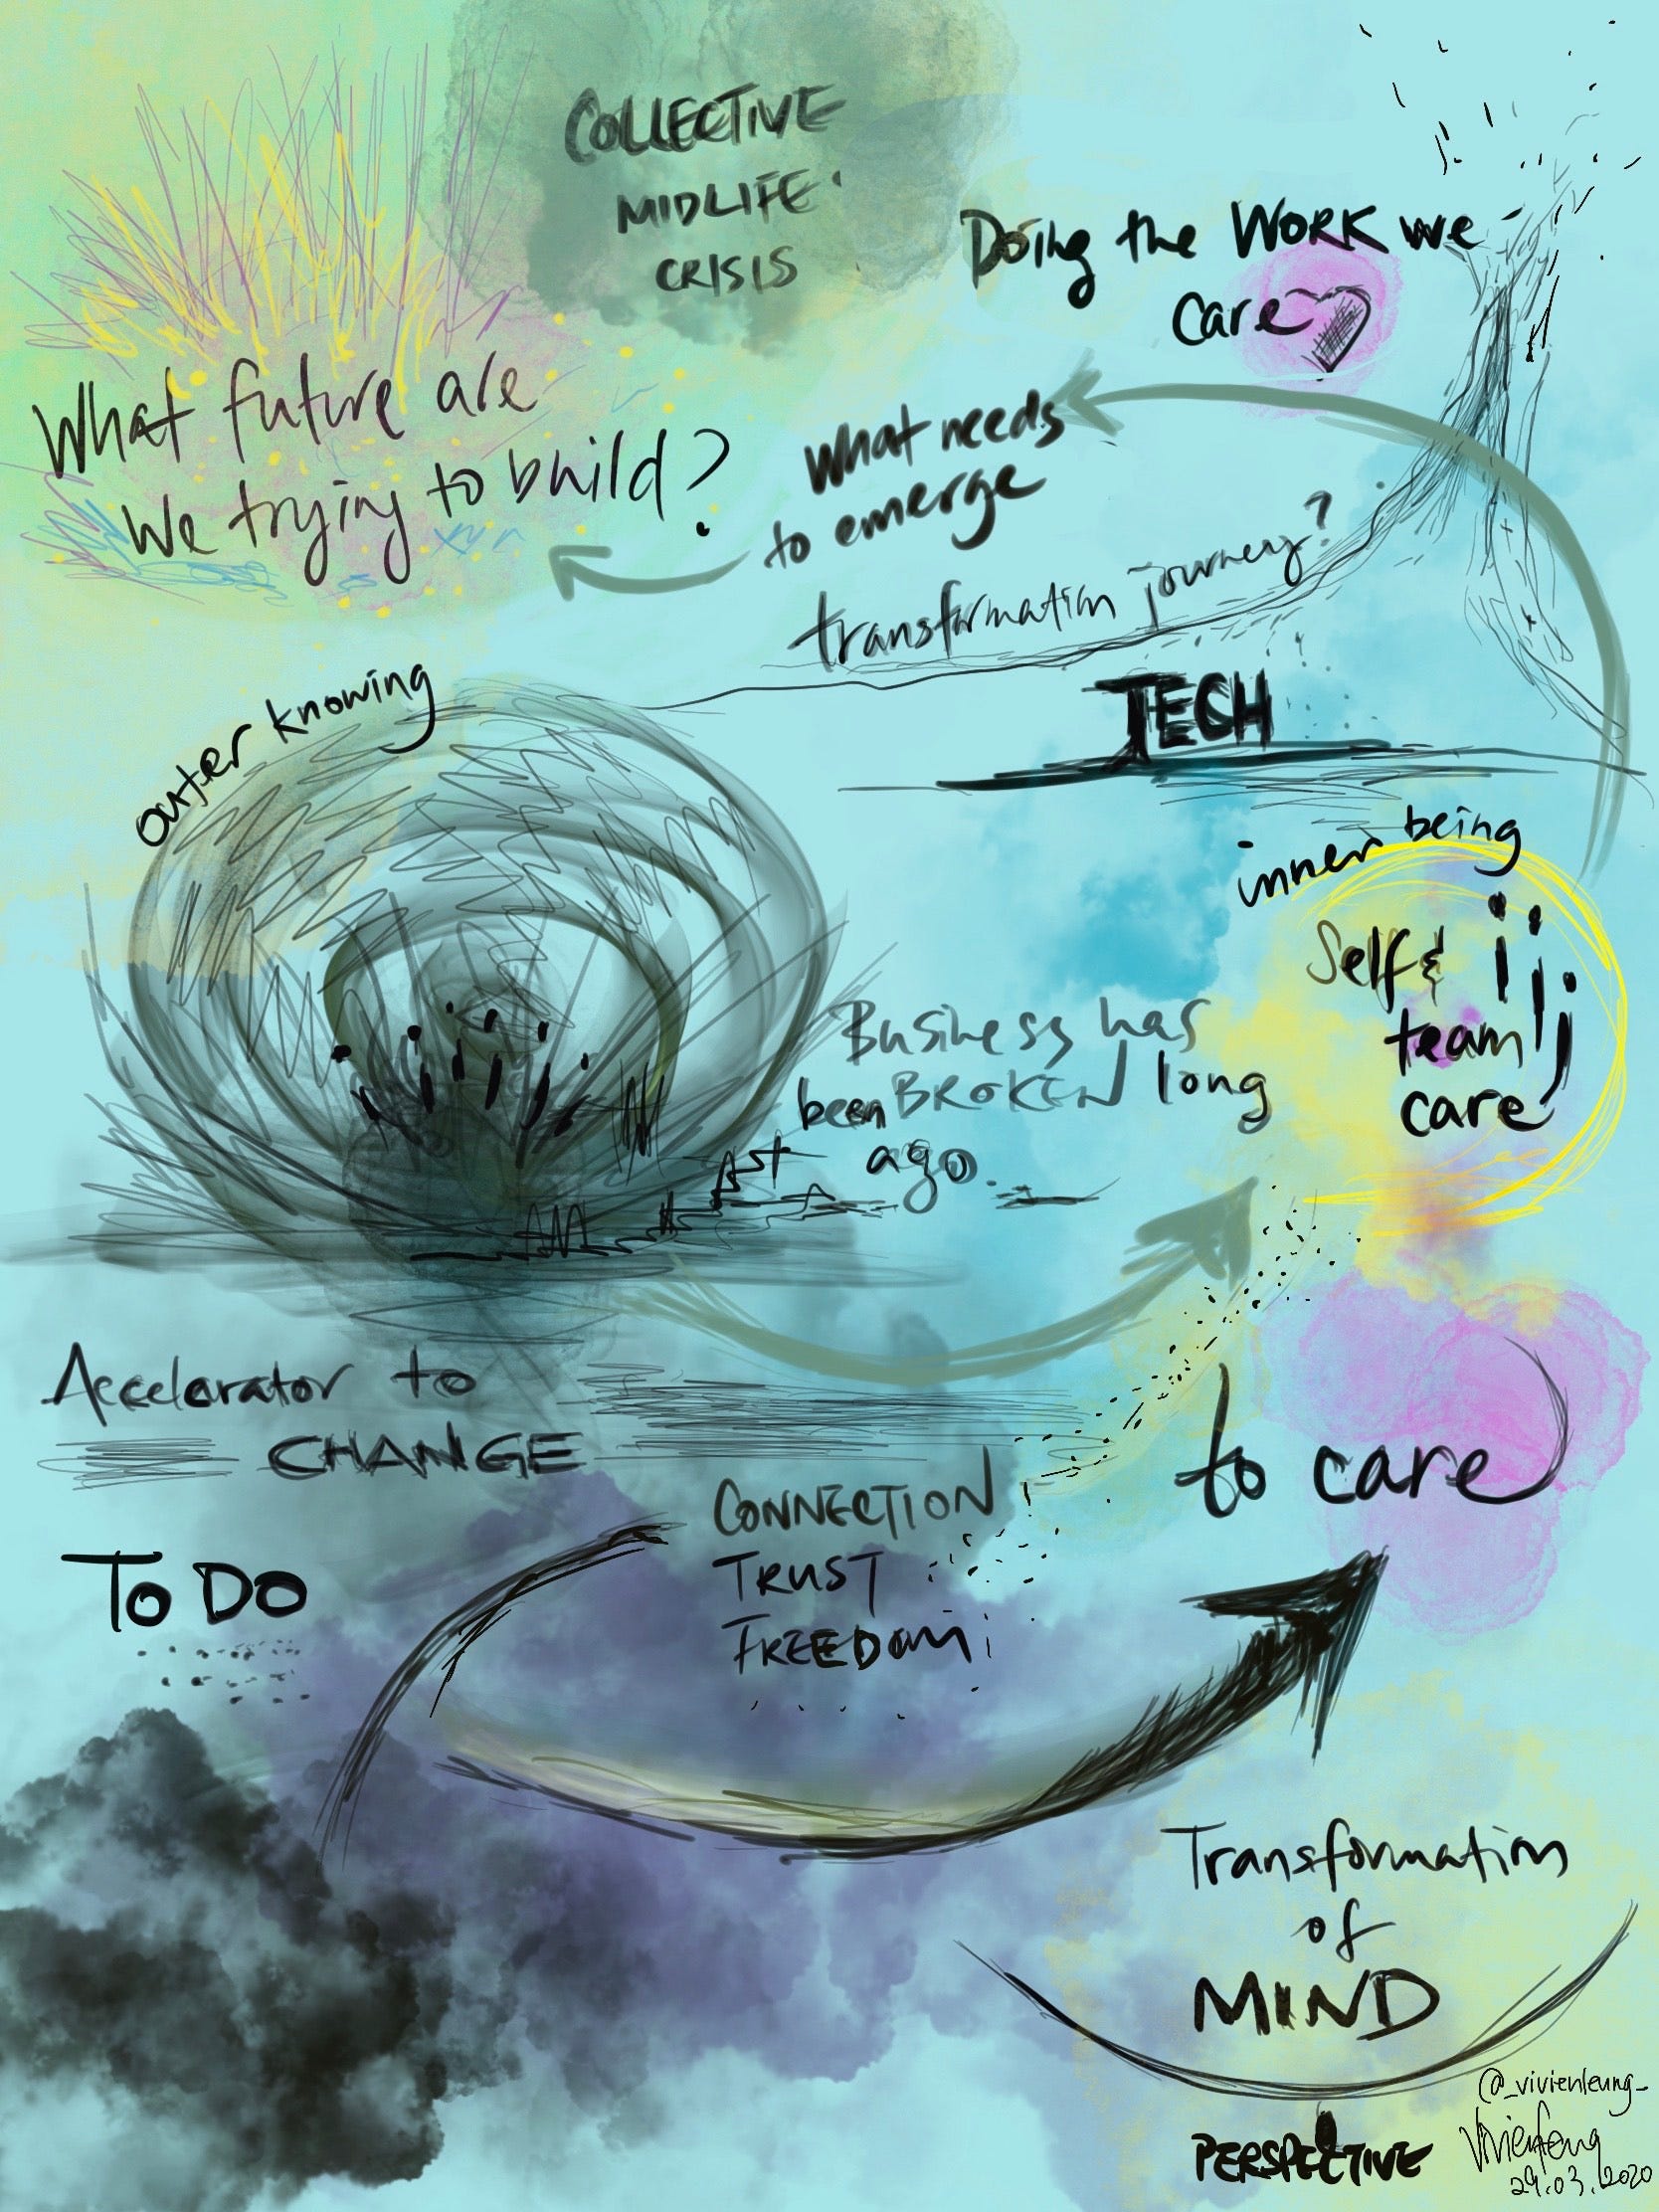 COLLECTIVE
MIDLIFE
CRISIS
Doing the WORK we
care
What future are
We trying to build?
What needs
to emerge
transformation journey?
TECH
outer knowing
inner being
Self &
team
care
Business has
been BROKEN long
ago.
Accelarator to
CHANGE
to care
CONNECTION
TRUST
FREEDOM
To DO
Transformation
of
MIND
PERSPECTIVE
@_vivienleung_
29.03.2020